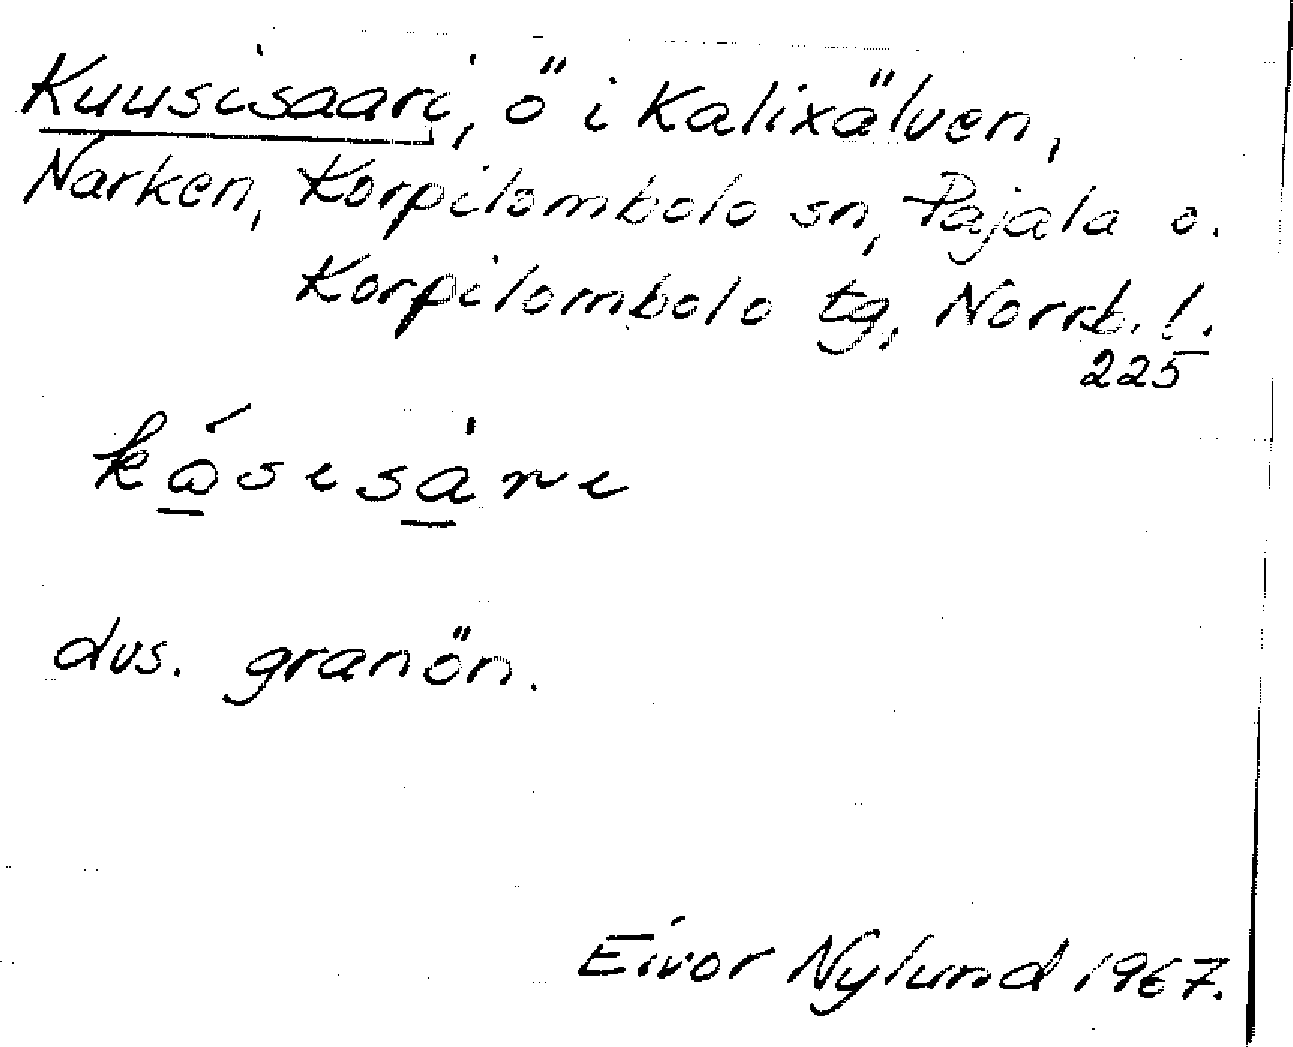 Kuusisaari, ö i Kalixälven,
Narken, Korpilombolo sn, Pajala o.
Korpilombolo tg, Norrb. l.
225
dvs. granön.
Eivor Nylund 1967.